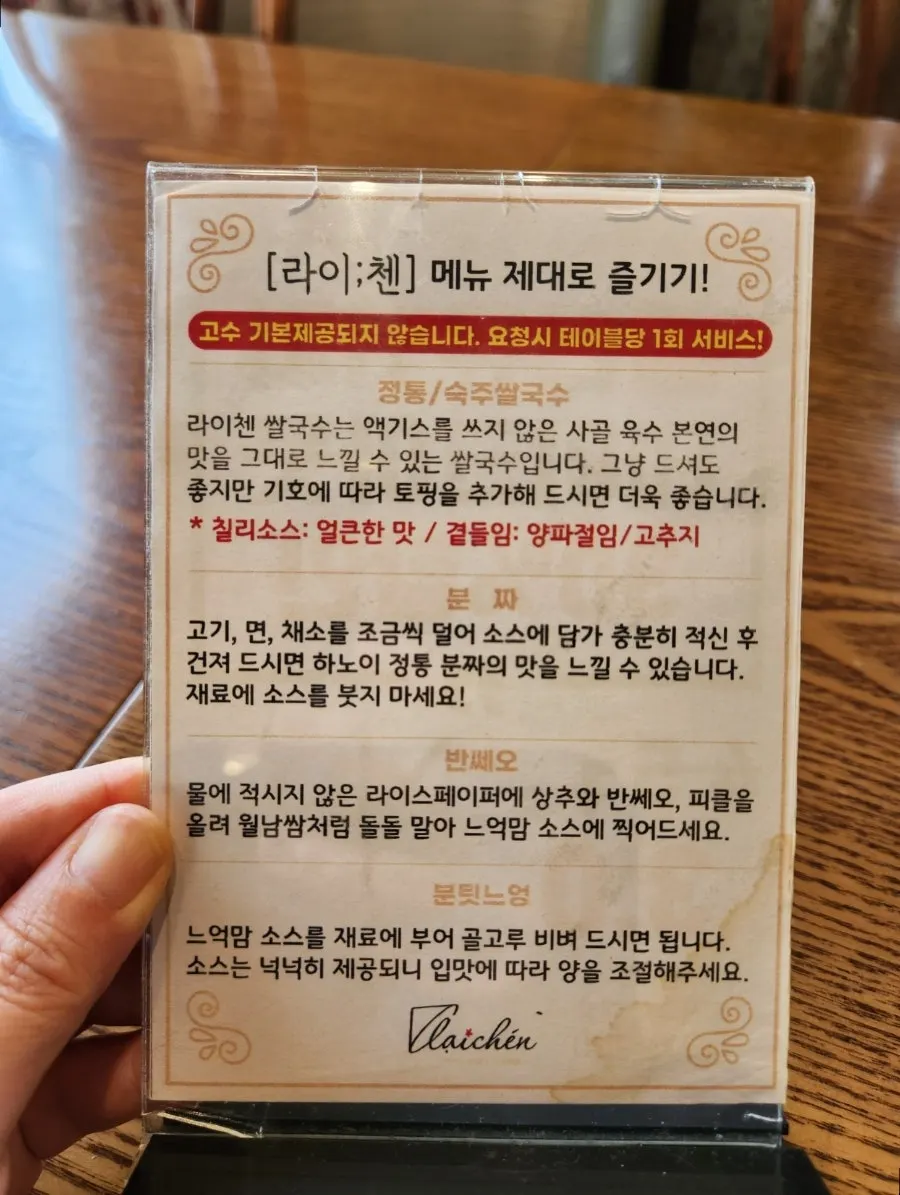 [라이;첸] 메뉴 제대로 즐기기!
고수 기본제공되지 않습니다. 요청시 테이블당 1회 서비스!
정통/숙주쌀국수
라이첸 쌀국수는 액기스를 쓰지 않은 사골 육수 본연의
맛을 그대로 느낄 수 있는 쌀국수입니다. 그냥 드셔도
좋지만 기호에 따라 토핑을 추가해 드시면 더욱 좋습니다.
* 칠리소스: 얼큰한 맛 / 곁들임: 양파절임/고추지
분 짜
고기, 면, 채소를 조금씩 덜어 소스에 담가 충분히 적신 후
건져 드시면 하노이 정통 분짜의 맛을 느낄 수 있습니다.
재료에 소스를 붓지 마세요!
반쎄오
물에 적시지 않은 라이스페이퍼에 상추와 반쎄오, 피클을
올려 월남쌈처럼 돌돌 말아 느억맘 소스에 찍어드세요.
분팃느엉
느억맘 소스를 재료에 부어 골고루 비벼 드시면 됩니다.
소스는 넉넉히 제공되니 입맛에 따라 양을 조절해주세요.
Lạichén